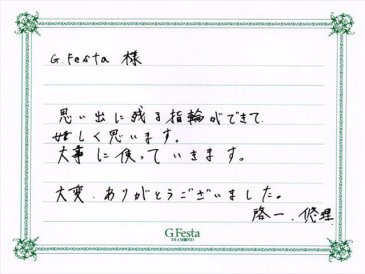 G.Festa 様
思い出に残る指輪ができて
嬉しく思います。
大事に使っていきます。
大変、ありがとうございました。
啓一、修理
G.Festa
DIAMOND